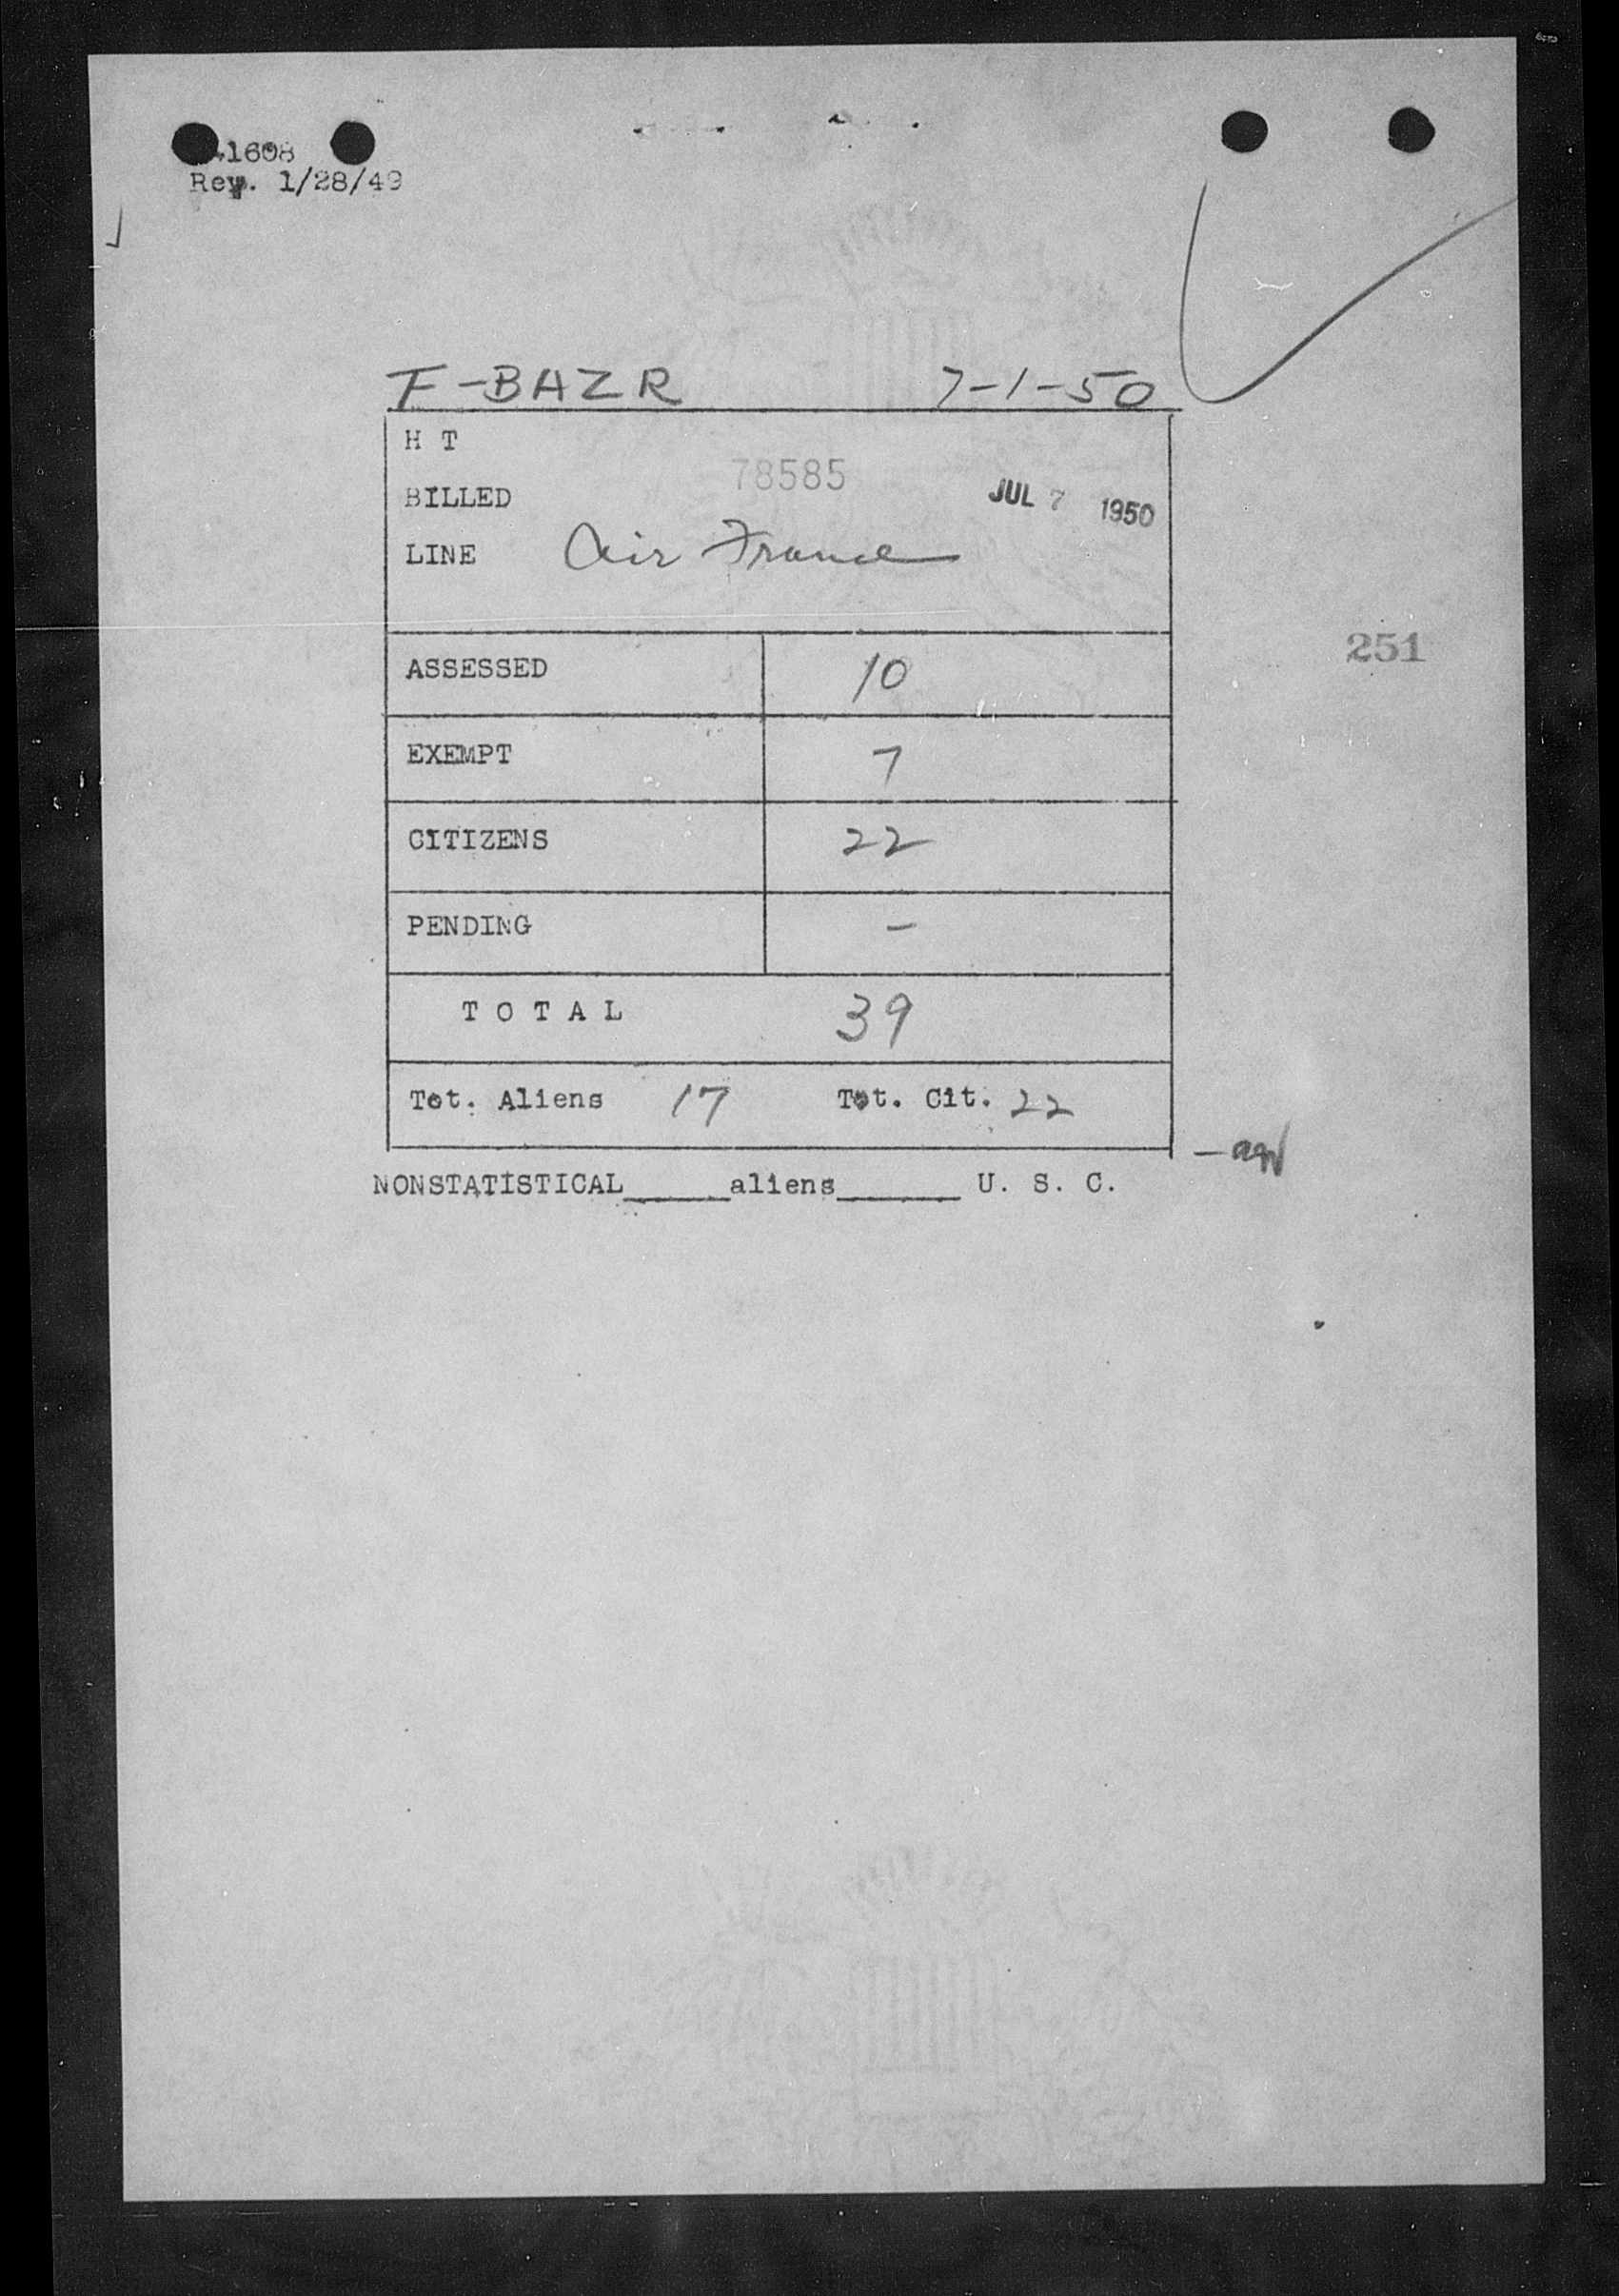 1608
Rev. 1/28/49
F-BAZR 7-1-50
H T
78585
BILLED JUL 7 1950
LINE Air France
251
ASSESSED 10
EXEMPT 7
CITIZENS 22
PENDING -
TOTAL 39
Tot. Aliens 17 Tot. Cit. 22
NONSTATISTICAL_____aliens______ U. S. C.